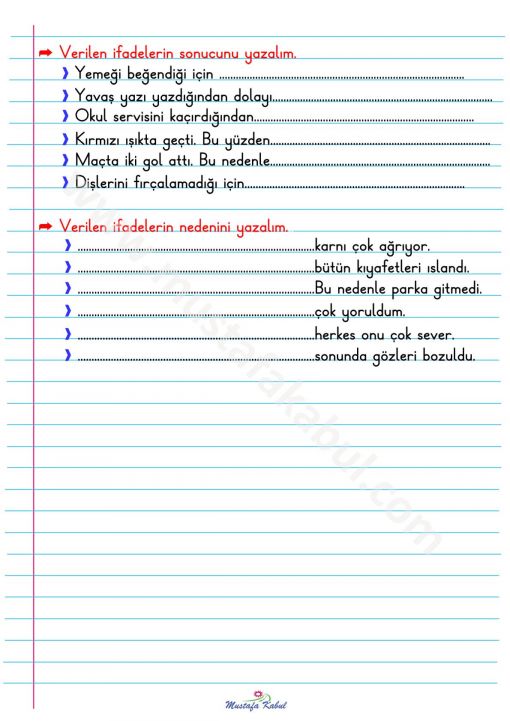 ➦ Verilen ifadelerin sonucunu yazalım.
❫ Yemeği beğendiği için ................................................................................
❫ Yavaş yazı yazdığından dolayı........................................................................
❫ Okul servisini kaçırdığından........................................................................
❫ Kırmızı ışıkta geçti. Bu yüzden........................................................................
❫ Maçta iki gol attı. Bu nedenle........................................................................
❫ Dişlerini fırçalamadığı için........................................................................
➦ Verilen ifadelerin nedenini yazalım.
❫ ..............................................................................karnı çok ağrıyor.
❫ ..............................................................................bütün kıyafetleri ıslandı.
❫ ..............................................................................Bu nedenle parka gitmedi.
❫ ..............................................................................çok yoruldum.
❫ ..............................................................................herkes onu çok sever.
❫ ..............................................................................sonunda gözleri bozuldu.
www.mustafakabul.com
Mustafa Kabul